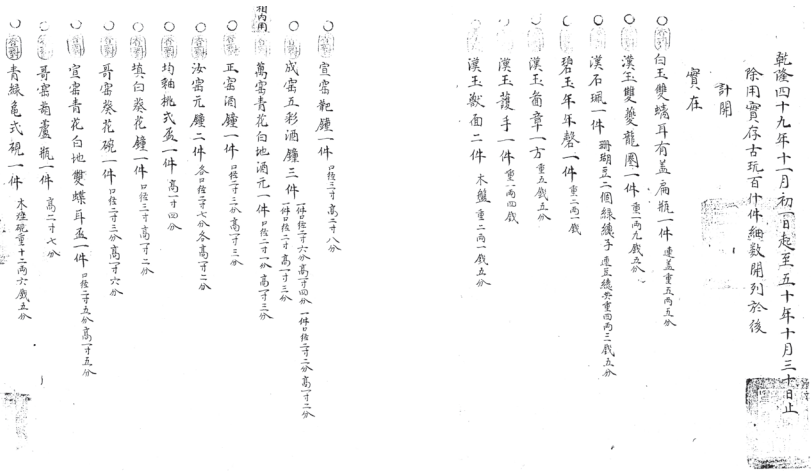 乾隆四十九年十一月初一日起至五十年十月三十日止
除用實存古玩百什件細数開列於後
計開
實在
白玉雙螭耳有盖扁瓶一件 連盖重五兩五分
漢玉雙夔龍圈一件 重一兩九戔五分
漢石珮一件 珊瑚豆二個絲繐子 連豆總共重四兩三戔五分
碧玉年年磬一件 重二兩二戔
漢玉啚章一方 重五戔五分
漢玉䕶手一件 重一兩四戔
漢玉獸面二件 木盤重二兩一戔五分
宣窑靶鐘一件 口徑三寸高二寸八分
成窑五彩酒鐘三件 一件口徑二寸六分高一寸四分 一件口徑二寸二分高一寸二分 一件口徑二寸高一寸三分
相內用
萬窑青花白地酒元一件 口徑二寸一分高一寸三分
正窑酒鐘一件 口徑二寸三分高一寸三分
汝窑元鐘二件 各口徑二寸七分各高一寸二分
均釉桃式盃一件 高一寸四分
填白葵花鐘一件 口徑三寸高一寸二分
哥窑葵花碗一件 口徑二寸三分高一寸六分
宣窑青花白地雙蝶耳盃一件 口徑二寸五分高一寸五分
哥窑葫蘆瓶一件 高二寸七分
青緑龜式硯一件 木座硯重十二兩六戔五分